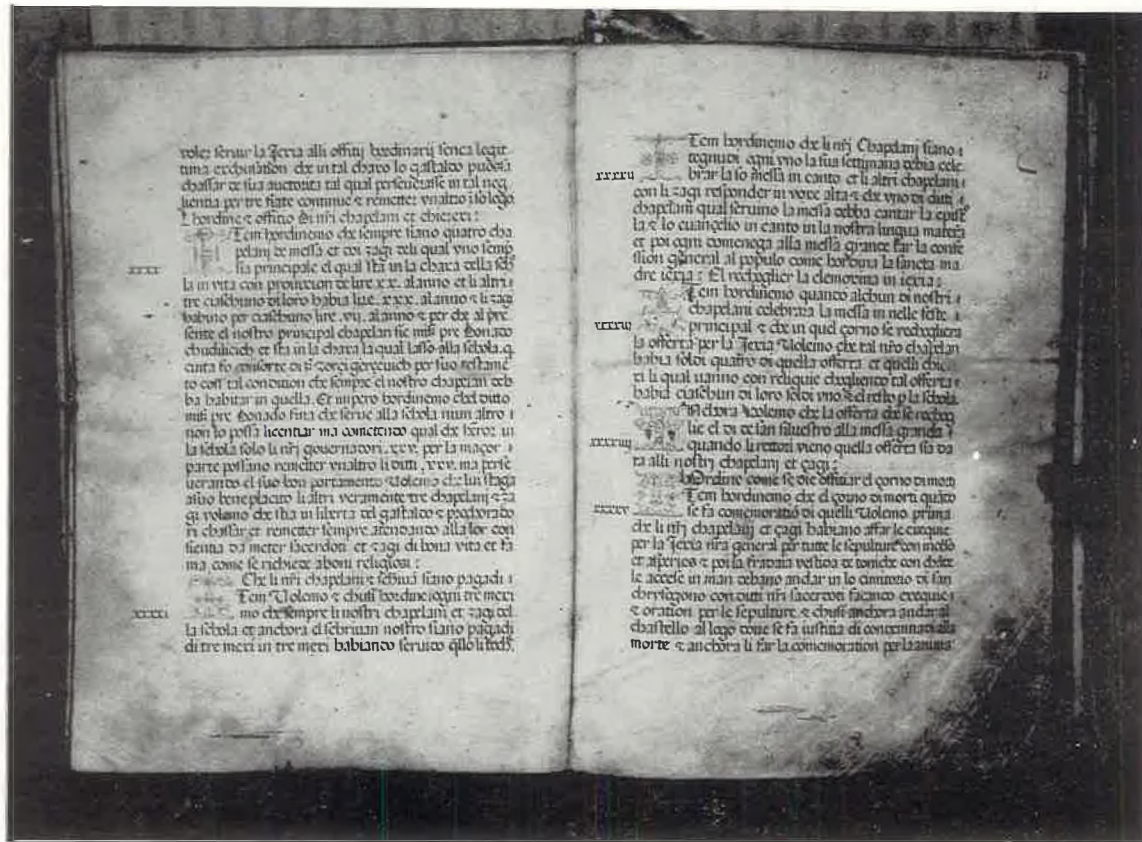 voles servir la Jexia alli offitij hordinarij senca legit
tima exchusation che in tal chaxo lo gastaldo pudera
chassar de sua auctorita tal qual perseverasse in tal neg
lientia per tre fiate continue & remeter vnaltro i so logo.
L hordine & offitio di nri chapelani et chierexi:
Item hordinemo che sempre siano quatro cha
pelani de messa et doi zagi deli qual vno semp
xxxx
sia principale el qual stia in la chaxa della scho
la in vita con provixion de lire xx. al anno et li altri
tre ciaschuno di loro habia lire. xxx. al anno & li zagi
habino per ciaschuno lire. vij. al anno & per che al pre
sente el nostro principal chapelan sie misr pre Donado
chudilicich et sta in la chaxa la qual lasso alla schola. q.
consorte di zorzi per suo testame
to con tal condition che sempre el nostro chapelan deb
ba habitar in quella. Et impero hordinemo chel ditto
misr pre Donado fina che serve alla schola niun altro
non lo possa licentiar ma cometendo qual che heror in
la schola solo li nri governatori. xxv. per la mazor
parte possano remeter vnaltro li ditti. xxv. ma perse
verando el suo bon portamento Volemo che lui staga
a suo bene placito li altri veramente tre chapelani & za
gi volemo che stia in liberta del gastaldo & prochurado
ri chassar et remetter sempre atendando alla lor con
sientia da meter sacerdoti et zagi di bona vita et fa
ma come se richiede a boni religiosi:
Che li nri chapelani & schivan siano pagadi
Item Volemo & chusi hordine i ogni tre mexi
xxxxi
mo che sempre li nostri chapelani et zagi del
la schola et anchora el scrivan nostro siano pagadi
di tre mexi in tre mexi habiando servido
Item hordinemo che li nri Chapelani siano
tegnudi ogni vno la sua settimana debia cele
xxxxij
brar la so messa in canto et li altri chapelani
con li zagi responder in voxe alta & che vno di ditti
chapelani qual servino la messa debba cantar la epist
la & lo euangelio in canto in la nostra lingua materna
et poi ogni domenega alla messa grande far la confe
ssion general al populo come hordina la sancta ma
dre iexia: El rechoglier la elemoxina in iexia:
Item hordinemo quando alchun di nostri
chapelani celebrara la messa in nelle feste
xxxxiij
principal & che in quel zorno se rechogliera
la offerta per la Jexia Volemo che tal nro chapelan
habia soldi quatro di quella offerta et quelli chie
ri li qual vanno con reliquie chogliendo tal offerta
habia ciaschun di loro soldi vno & el resto p la schola.
Anchora Volemo che la offerta che se rechog
lie el di de san silvestro alla messa granda
xxxxiiij
quando li rettori vieno quella offerta sia da
ta alli nostri chapelani et zagi:
Hordino come se die offitiar el zorno di morti
Item hordinemo che el zorno di morti quado
xxxxv
se fa comemoratio di quelli Volemo prima
che li nri chapelani et zagi habiano affar le exequie
per la Jexia nra general per tutte le sepulture con
et asperios & poi la fraitaia vestida de toniche con
le accese in man debano andar in lo cimiterio di san
chrysogono con tutti nri sacerdoti facando exequie
& oration per le sepulture & chusi anchora andar al
chastello al logo dove se fa iustitia di condemnati alla
morte & anchora li far la comemoration per la anima